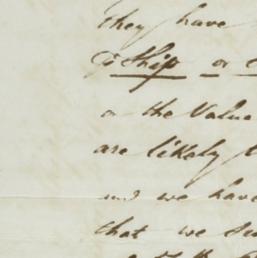 they have
Ship or
or the Value
are likely t
and we have
that we